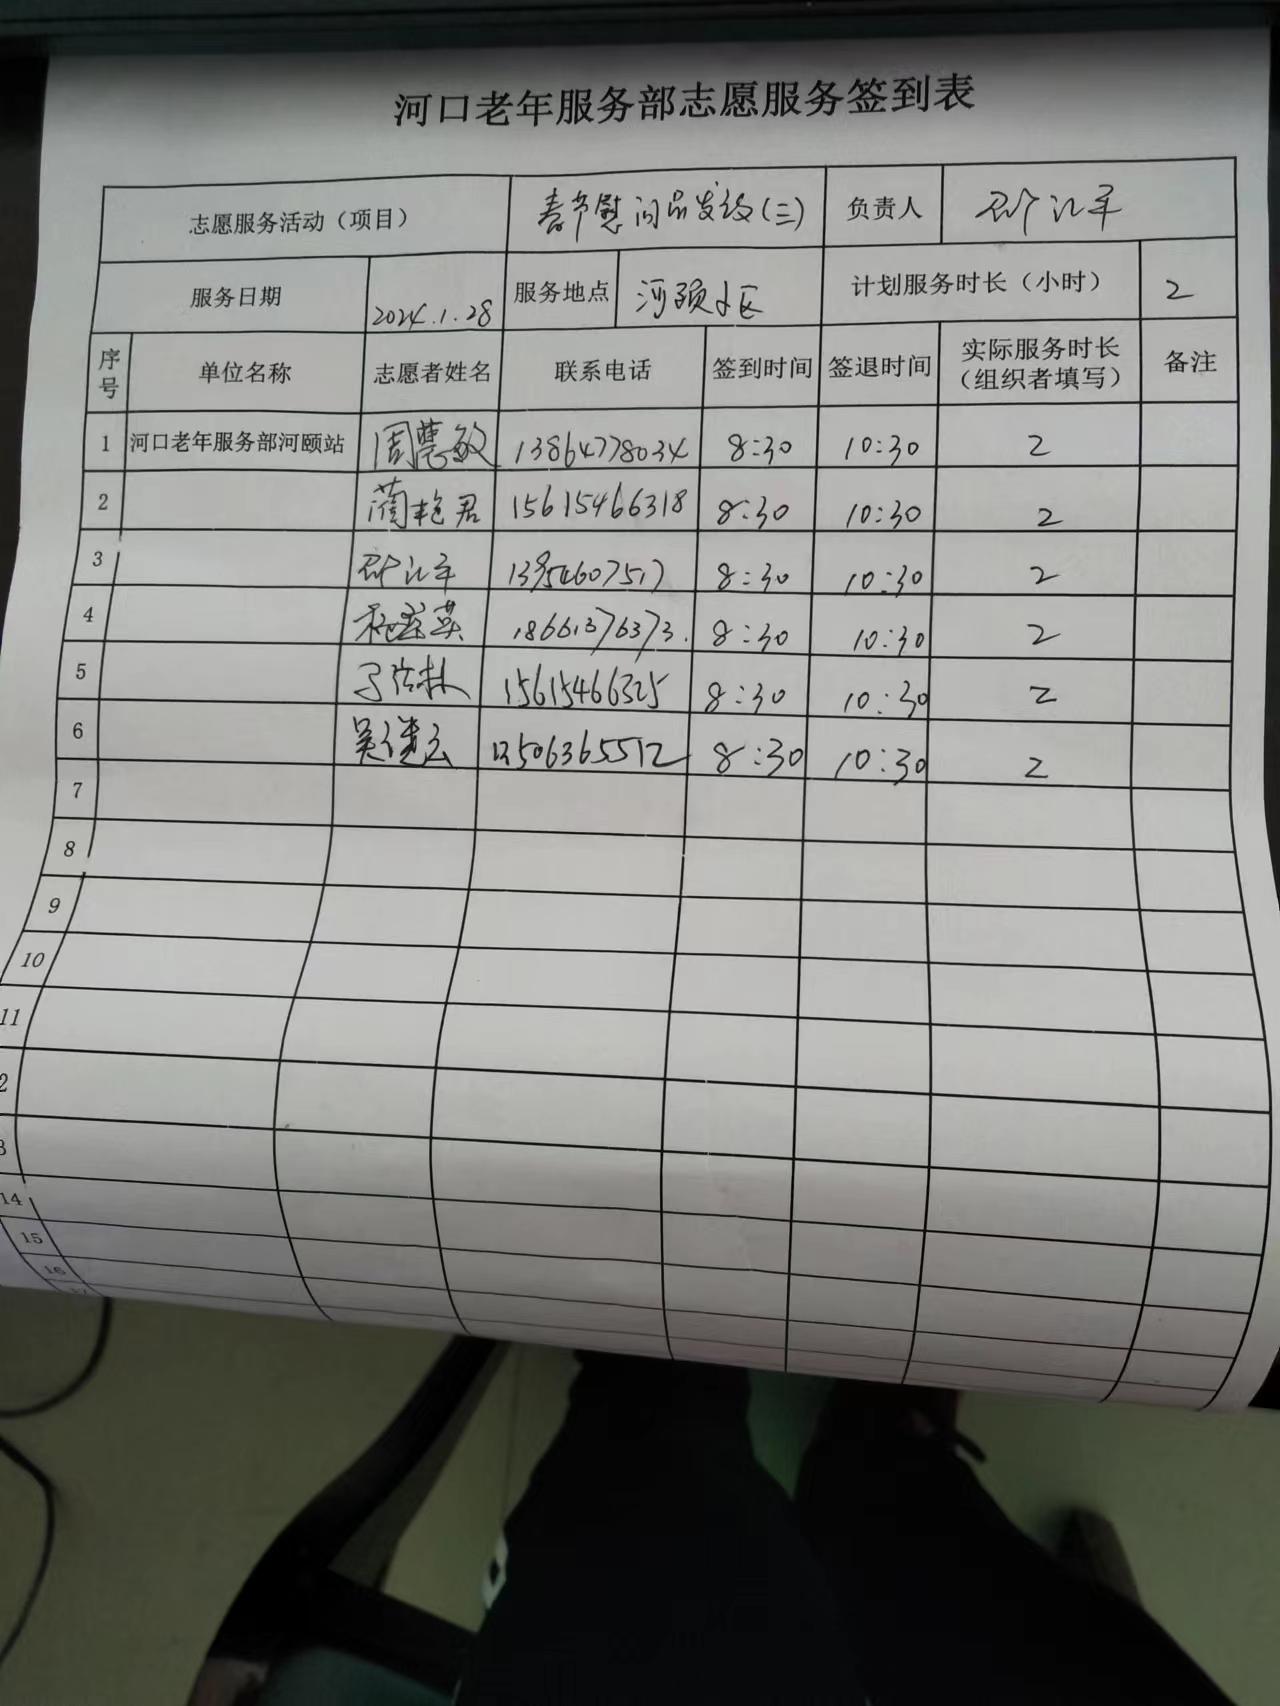 河口老年服务部志愿服务签到表
志愿服务活动（项目） 春节慰问品发放(三) 负责人
服务日期 2024.1.28 服务地点 河颐小区 计划服务时长（小时） 2
序号 单位名称 志愿者姓名 联系电话 签到时间 签退时间 实际服务时长（组织者填写） 备注
1 河口老年服务部河颐站 周慧敏 13864778034 8:30 10:30 2
2 蔺艳君 15615466318 8:30 10:30 2
3 13954607517 8:30 10:30 2
4 18661376373. 8:30 10:30 2
5 15615466325 8:30 10:30 2
6 13506365512 8:30 10:30 2
7
8
9
10
11
2
3
14
15
16